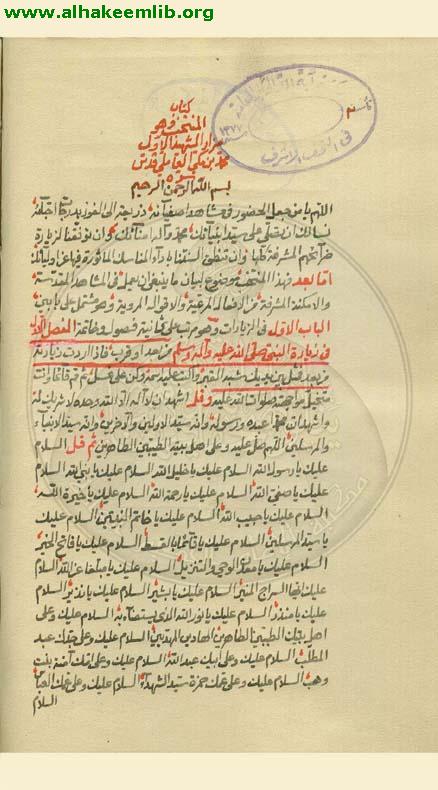 www.alhakeemlib.org
كتاب
المنتخب وهو
مزار الشهيد الاول
محمد بن مكي العاملي قدس
سره
بسم الله الرحمن الرحيم
اللهم يا من جعل الحضور في مشاهد اصفيائه ذريعة الى الفوز بدرجات احبائه
نسالك ان تصلي على سيد انبيائك محمد وآله امنائك وان توفقنا لزيارة
ضرائحهم المشرفة كلها وان تنطق السنتنا باداء المناسك الماثورة فيها عن اوليائك
اما بعد فهذا المنتخب موضوع لبيان ما ينبغي ان يعمل في المشاهد المقدسة
والامكنة المشرفة من الافعال المرغبة والاقوال المروية وهو مشتمل على بابين
الباب الاول في الزيارات وهو مرتب على ثمانية فصول وخاتمة الفصل الاول
في زيارة النبي صلى الله عليه وآله وسلم من بعد او قرب فاذا اردت زيارته
من بعد فمثل بين يديك شبه القبر واكتب عليه اسمه وكن على غسل ثم قم قائما وانت
متخيل مواجهته صلوات الله عليه وقل اشهد ان لا اله الا الله وحده لا شريك له
واشهد ان محمدا عبده ورسوله وانه سيد الاولين والآخرين وانه سيد الانبياء
والمرسلين اللهم صل عليه وعلى اهل بيته الطيبين الطاهرين ثم قل السلام
عليك يا رسول الله السلام عليك يا خليل الله السلام عليك يا نبي الله السلام
عليك يا صفي الله السلام عليك يا رحمة الله السلام عليك يا خيرة الله
السلام عليك يا حبيب الله السلام عليك يا خاتم النبيين السلام عليك
يا سيد المرسلين السلام عليك يا قائما بالقسط السلام عليك يا فاتح الخير
السلام عليك يا معدن الوحي والتنزيل السلام عليك يا مبلغا عن الله السلام
عليك ايها السراج المنير السلام عليك يا بشير السلام عليك يا نذير السلام
عليك يا منذر السلام عليك يا نور الله الذي يستضاء به السلام عليك وعلى
اهل بيتك الطيبين الطاهرين الهادين المهديين السلام عليك وعلى جدك عبد
المطلب السلام عليك وعلى ابيك عبد الله السلام عليك وعلى امك آمنة بنت
وهب السلام عليك وعلى عمك حمزة سيد الشهداء السلام عليك وعلى عمك العباس
السلام